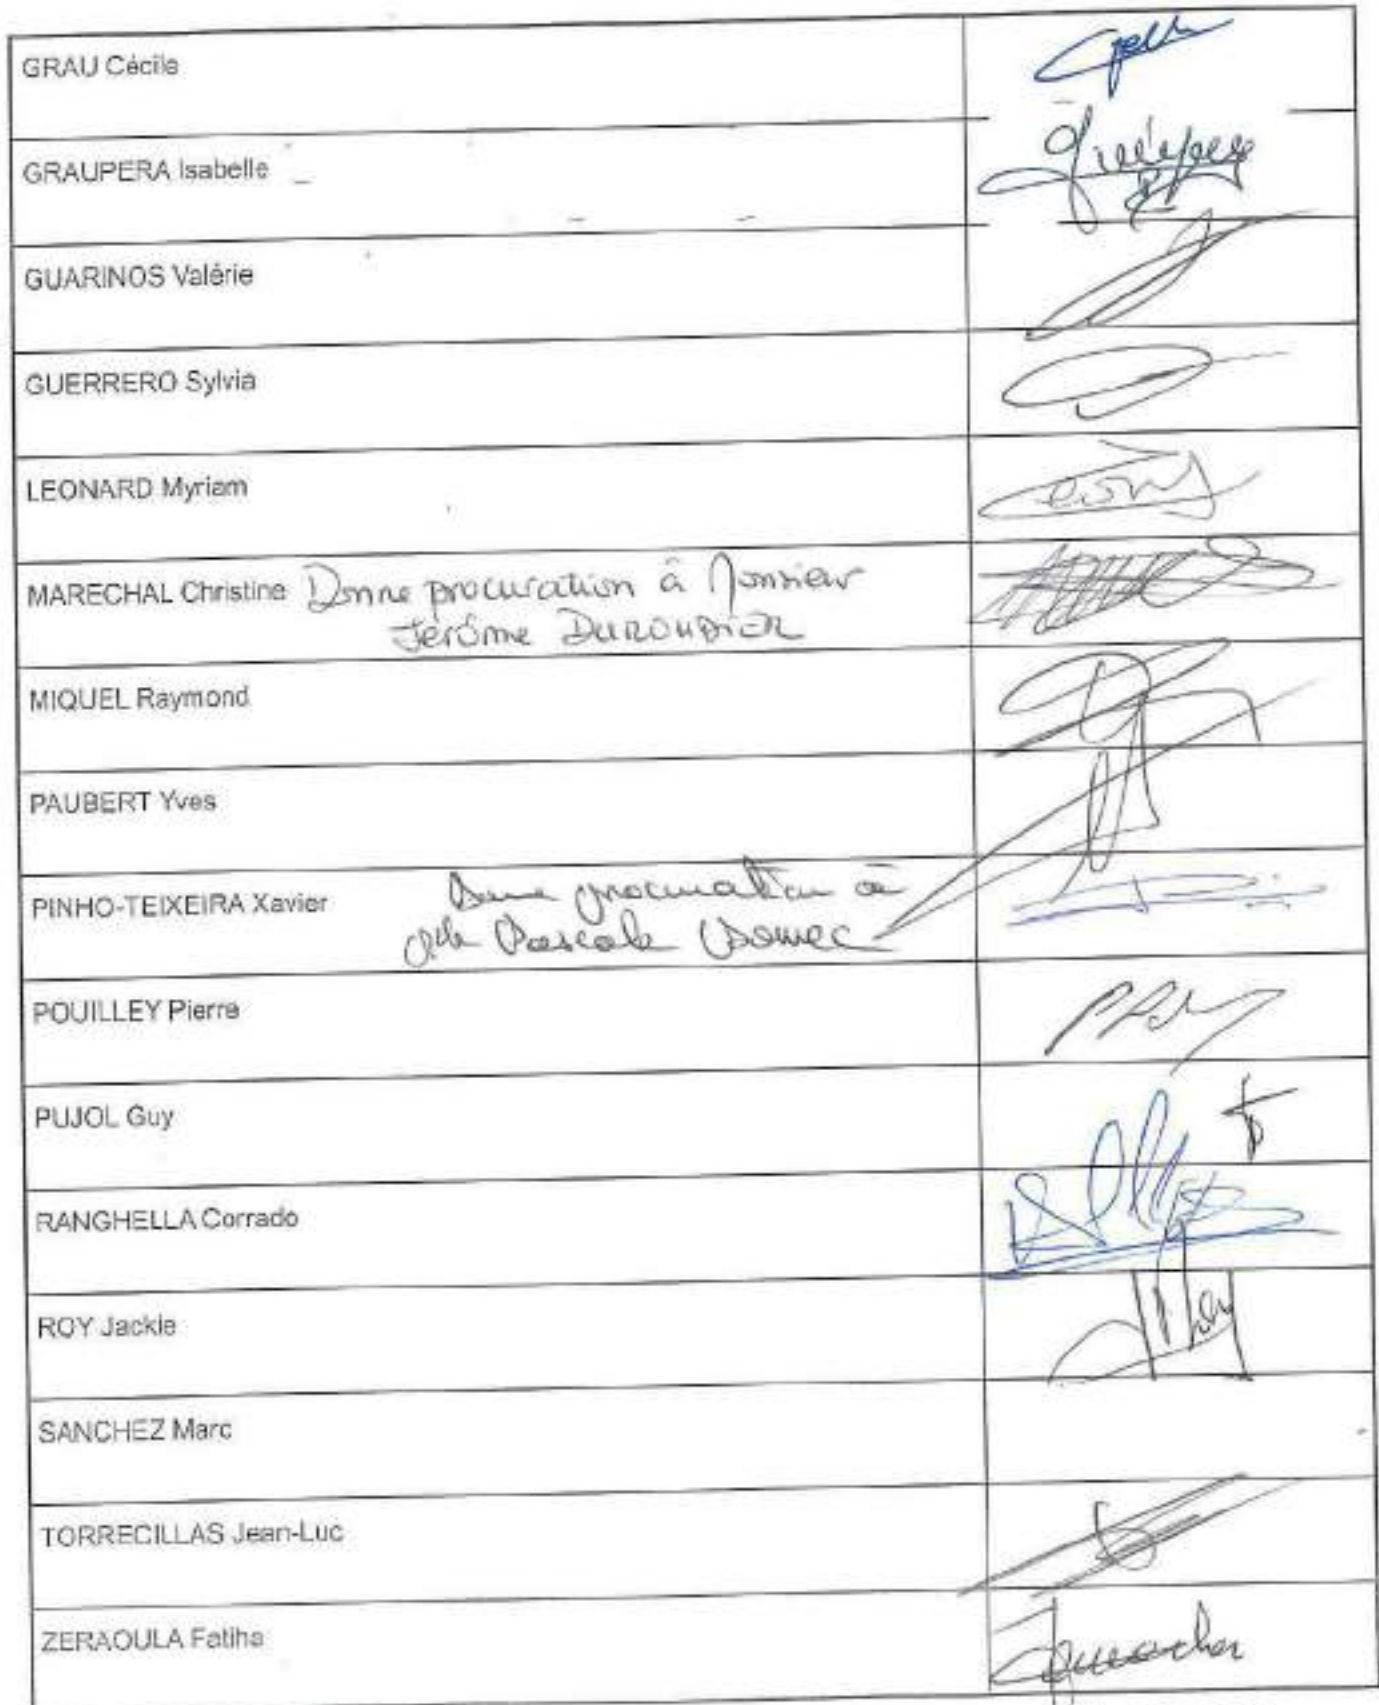 GRAU Cécile
GRAUPERA Isabelle
GUARINOS Valérie
GUERRERO Sylvia
LEONARD Myriam
MARECHAL Christine Donne procuration à Monsieur
Jérôme DUROUDIER
MIQUEL Raymond
PAUBERT Yves
PINHO-TEIXEIRA Xavier Donne procuration à
Pascale
POUILLEY Pierre
PUJOL Guy
RANGHELLA Corrado
ROY Jackie
SANCHEZ Marc
TORRECILLAS Jean-Luc
ZERAOULA Fatiha